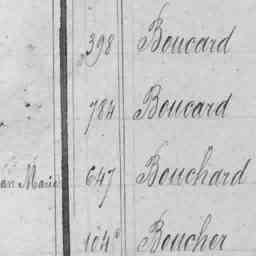 398 Boucard
784 Boucard
an Marie 647 Bouchard
104 Boucher